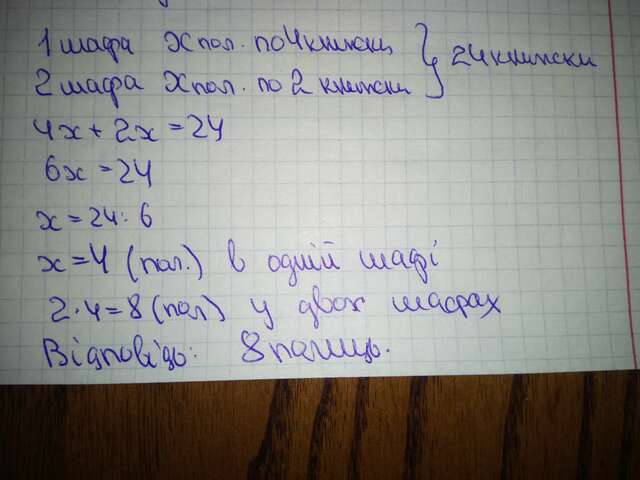 1 шафа х пол. по 4 книжки } 24 книжки
2 шафа х пол. по 2 книжки
4х + 2х = 24
6х = 24
х = 24 : 6
х = 4 (пол.) в одній шафі
2 · 4 = 8 (пол) у двох шафах
Відповідь: 8 полиць.